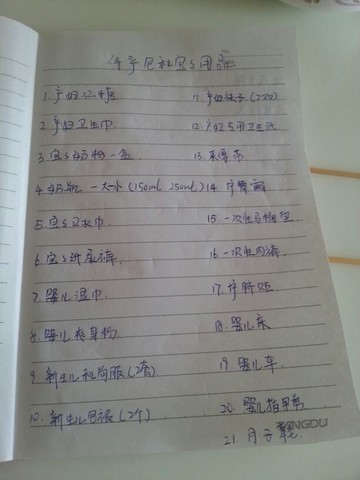 待产包和宝宝用品
1. 产妇红糖
2. 产妇卫生巾
3. 宝宝奶粉一盒
4. 奶瓶 一大一小 (150ml 250ml)
5. 宝宝口水巾
6. 宝宝纸尿裤
7. 婴儿湿巾
8. 婴儿爽身粉
9. 新生儿和尚服(2套)
10. 新生儿包被(2个)
11. 产妇袜子(2双)
12. 产妇专用卫生纸
13. 束腹带
14. 护臀霜
15. 一次性马桶垫
16. 一次性内裤
17. 护脐贴
18. 婴儿床
19. 婴儿车
20. 婴儿指甲剪
21. 月子鞋